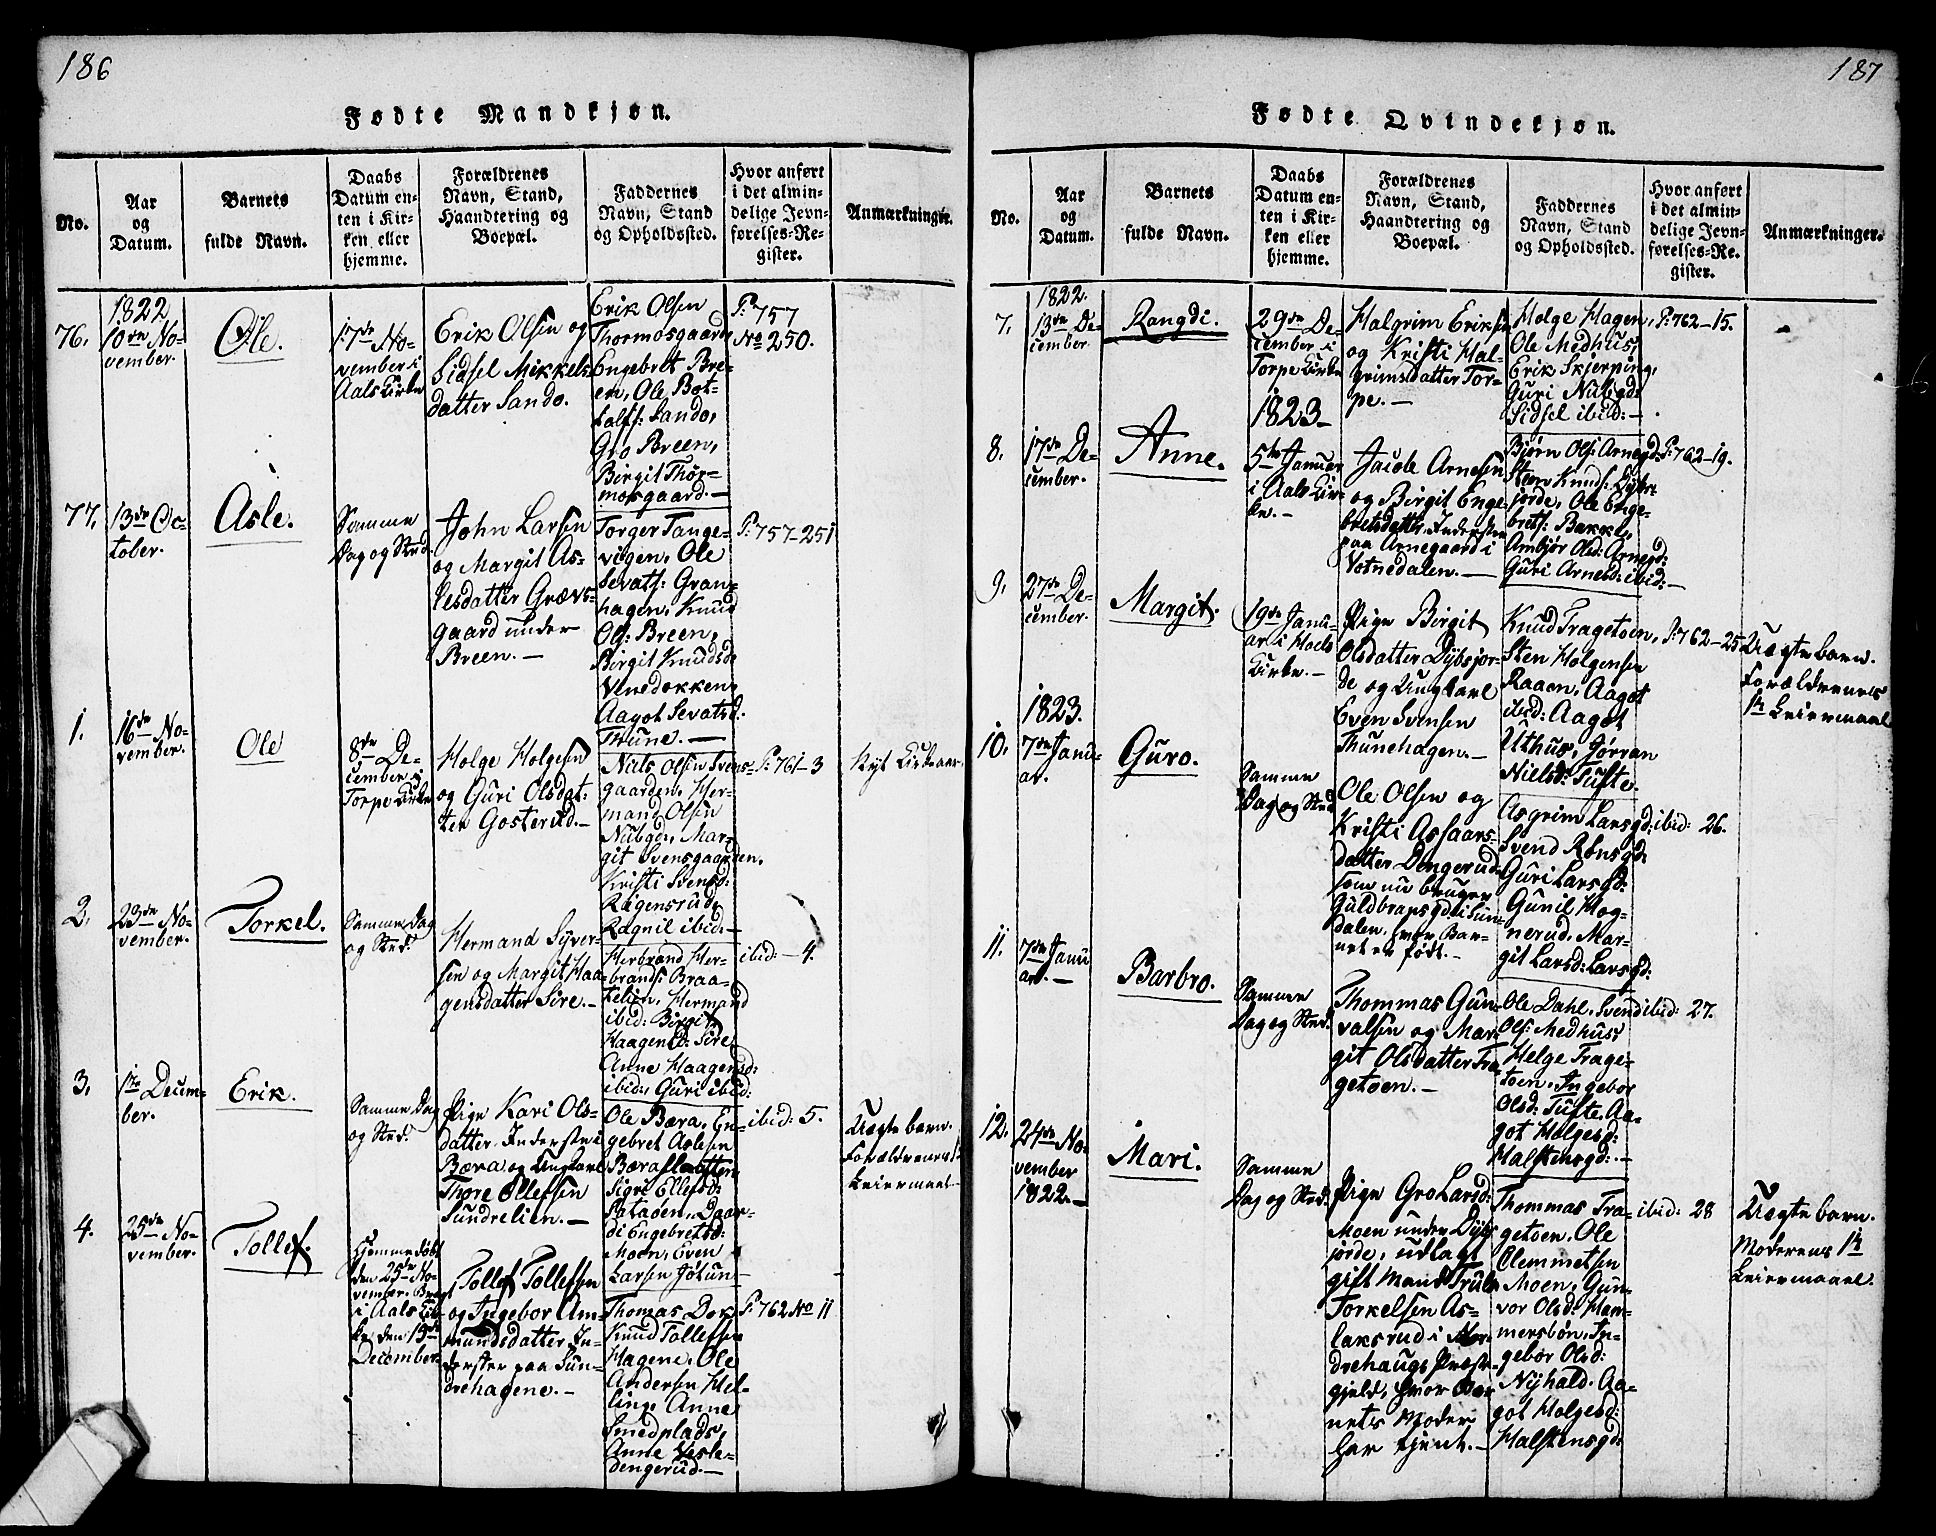 186
Fødte Mandkjøn.
No.
Aar
og
Datum.
Barnets
fulde Navn.
Daabs
Datum en-
ten i Kir-
ken eller
hjemme.
Forældrenes
Navn, Stand,
Haandtering og
Boepæl.
Faddernes
Navn, Stand
og Opholdssted.
Hvor anført
i det almin-
delige Jevn-
førelses-Re-
gister.
Anmærkninger.
76.
1822
10de No-
vember.
Ole.
17de No-
vember i
Aals Kirke
Erik Olsen og
Sidsel Mikkels-
datter Sando.
Erik Olsen
Thormosgaard
Engebret Bre-
en, Ole Bot-
tolfs: Sando,
Gro Breen,
Birgit Thor-
mosgaard.—
P: 757
No 250.
77.
13de Oc-
tober.
Asle.
Samme
Dag og Sted.
John Larsen
og Margit As-
lesdatter Grøvs-
gaard under
Breen.—
Torger Tange-
vigen, Ole
Sevats: Gran-
hagen, Knud
Ols: Breen,
Birgit Knudsd:
Vinedokken,
Aagot Sevatsd:
Thune.—
P: 757-251
1.
16de No-
vember.
Ole
8de De-
cember i
Torpe Kirke
Holge Holgesen
og Guri Olsdat-
ter Gosterud.—
Niels Olsen Svens-
gaarden, Her-
mand Olsen
Nubgd, Mar-
git Svensgaarden,
Kristi Svensd:
Ragensrud,
Ragnil ibid:—
P: 761-3
Nyt Kirkeaar.
2.
23de No-
vember.
Torkel.
Samme Dag
og Sted.
Hermand Syver-
sen og Margit Haa-
gensdatter Sire.—
Herbrand Her-
brands: Braa-
telien, Hermand
ibid: Birgit
Haagensd: Sire,
Anne Haagensd:
ibid:, Guri ibid:
ibid:—4.
3.
1te Decem-
ber.
Erik.
Samme Dag
og Sted.
Pige Kari Ols-
datter Inderste i
Bæra og Ungkarl
Thore Ellefsen
Sundrelien.—
Ole Bæra, En-
gebret Aslesen
Bæraslaatten
Sigri Ellefsd:
Pataøen, Daar-
di Engebretsd:
Moen, Even
Larsen Jøtun—
ibid: 5.
Uægte barn.
Forældrenes 1te
Leiermaal—
4.
25de No-
vember.
Tollef.
Hjemmedøbt
den 25de No-
vember. Bragt
i Aals Kir-
ke den 15de
December.
Tollef Tollefsen
og Ingebor Am-
mundsdatter In-
derster paa Sun-
drehagene.—
Thomas Dok,
Knud Tollefsen
Hagene, Ole
Andersen Hel-
ling, Anne
Smedplads,
Anne Vesle-
dengerud.—
P: 762 No 11
187
Fødte Qvindekjøn.
No.
Aar
og
Datum.
Barnets
fulde Navn.
Daabs
Datum en-
ten i Kir-
ken eller
hjemme.
Forældrenes
Navn, Stand,
Haandtering og
Boepæl.
Faddernes
Navn, Stand
og Opholdssted.
Hvor anført
i det almin-
delige Jevn-
førelses-Re-
gister.
Anmærkninger.
7.
1822.
13de De-
cember.
Rangdi.
29de De-
cember i
Torpe Kirke
Halgrim Eriksen
og Kristi Hal-
grimsdatter Tor-
pe.—
Holge Hagen,
Ole Medhus,
Erik Skjerping,
Guri Nubgd:
Sidsel ibid:—
P: 762-15.
8.
17de De-
cember.
Anne.
1823—
5te Januar
i Aals Kir-
ke.—
Jacob Arnesen
og Birgit Enge-
bretsdatter Inderster
paa Arnegaard i
Votnedalen.—
Bjørn Ols: Arnegd:
Sten Knuds: Dybs-
jorde, Ole Enge-
brets: Bakke,
Ambjør Olsd: Arnegd:
Guri Arnesd: ibid:—
P: 762-19.
9.
27de De-
cember.
Margit.
19de Janu-
ar i Hols
Kirke.—
Pige Birgit
Olsdatter Dybsjor-
de og Ungkarl
Even Svensen
Thunehagen.—
Knud Tragetoen,
Sten Holgensen
Raaen, Aagot
ibid: Aagot
Uthus, Jorran
Nielsd: Tufte.
P: 762-25
Uægte barn.
Forældrenes
1te Leiermaal
10.
1823.
7de Janu-
ar.
Guro.
Samme
Dag og Sted.
Ole Olsen og
Kristi Assaars-
datter Dengerud
som nu bruger
Guldbransgd i Sun-
dalen, hvor Bar-
net er født.—
Asgrim Larsgd:
Svend Rønsgd,
Guri Larsgd:
Gunil Hog-
nerud, Mar-
git Larsd: Larsgd:
ibid: 26.
11.
7de Janu
ar.—
Barbro.
Samme
Dag og Sted.
Thommas Gun-
valsen og Mar-
git Olsdatter Tra-
getoen.—
Ole Dahl, Svend
Ols: Medhus,
Helge Trage-
toen, Ingebor
Olsd: Tufte, Aa-
got Holgesd:
Halstensgd:—
ibid: 27.
12.
24de No-
vember
1822.—
Mari.
Samme
Dag og Sted.
Pige Gro Larsd:
Moen under Dybs-
jorde, udlagt
gift Mand Truls
Torkelsen As-
laksrud i Nor-
drehaugs Præste-
gjeld, hvor Bar-
nets Moder
har tjent.—
Thommas Tra-
getoen, Ole
Clemmetsen
Moen, Gun-
vor Olsd: Ham-
mersbøn, In-
gebor Olsd:
Nyhald. Aa-
got Holgesd:
Halstensgd:
ibid: 28
Uægte barn.
Moderens 1te
Leiermaal.